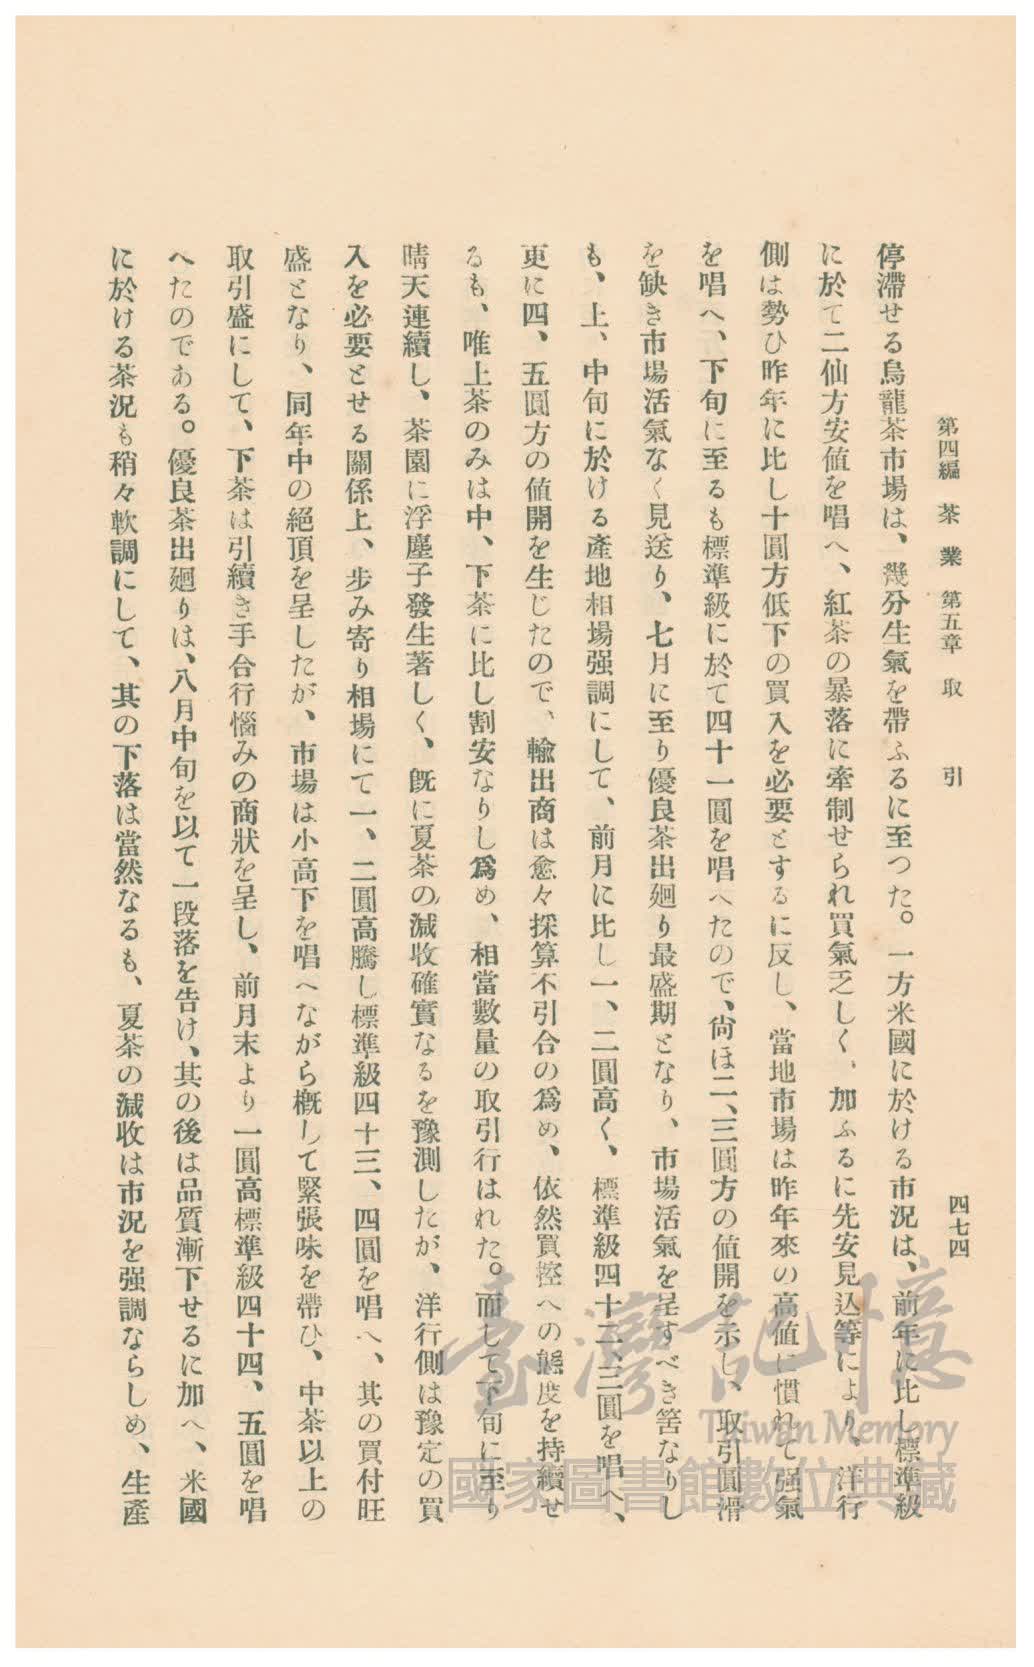 第四編 茶業 第五章 取引
四七四
停滯せる烏龍茶市場は、幾分生氣を帶ふるに至つた。一方米國に於ける市況は、前年に比し標準級
に於て二仙方安値を唱へ、紅茶の暴落に牽制せられ買氣乏しく、加ふるに先安見込等により、洋行
側は勢ひ昨年に比し十圓方低下の買入を必要とするに反し、當地市場は昨年來の高値に慣れて强氣
を唱へ、下旬に至るも標準級に於て四十一圓を唱へたので、尙ほ二、三圓方の値開を示し、取引圓滑
を缺き市場活氣なく見送り、七月に至り優良茶出廻り最盛期となり、市場活氣を呈すべき筈なりし
も、上、中旬に於ける產地相場强調にして、前月に比し一、二圓高く、標準級四十二、三圓を唱へ、
更に四、五圓方の値開を生じたので、輸出商は愈々採算不引合の爲め、依然買控への態度を持續せ
るも、唯上茶のみは中、下茶に比し割安なりし爲め、相當數量の取引行はれた。而して下旬に至り
晴天連續し、茶園に浮塵子發生著しく、旣に夏茶の減收確實なるを豫測したが、洋行側は豫定の買
入を必要とせる關係上、步み寄り相場にて一、二圓高騰し標準級四十三、四圓を唱へ、其の買付旺
盛となり、同年中の絕頂を呈したが、市場は小高下を唱へながら槪して緊張味を帶ひ、中茶以上の
取引盛にして、下茶は引續き手合行惱みの商狀を呈し、前月末より一圓高標準級四十四、五圓を唱
へたのである。優良茶出廻りは、八月中旬を以て一段落を告け、其の後は品質漸下せるに加へ、米國
に於ける茶況も稍々軟調にして、其の下落は當然なるも、夏茶の減收は市況を强調ならしめ、生產
臺灣記憶
Taiwan Memory
國家圖書館數位典藏